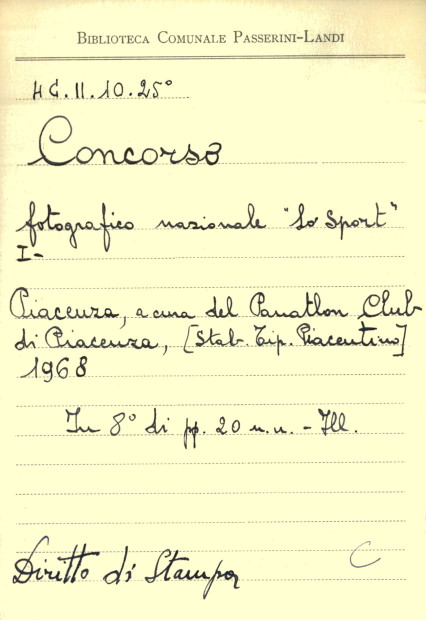 BIBLIOTECA COMUNALE PASSERINI-LANDI
4G.II.10.25°
Concorso
fotografico nazionale "Lo Sport"
I-
Piacenza, a cura del Panathlon Club
di Piacenza, [Stab. Tip. Piacentino]
1968
In 8° di pp. 20 n.n. - Ill.
Diritto di Stampa
C